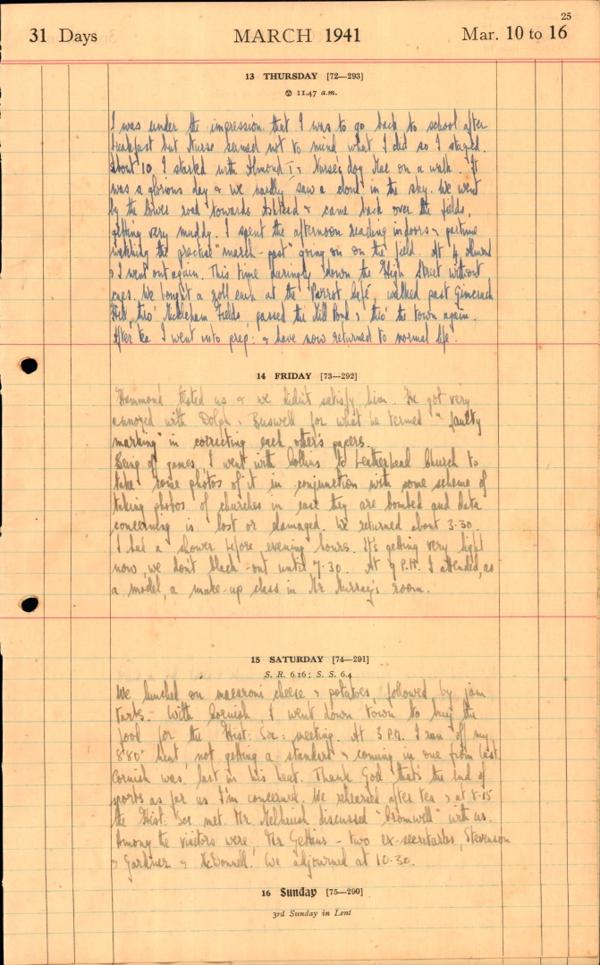 25
31 Days MARCH 1941 Mar. 10 to 16
13 THURSDAY [72—293]
11.47 a.m.
I was under the impression that I was to go back to school after
breakfast but Nurse seemed not to mind what I did so I stayed.
About 10 I started with Almond I & Nurse's dog Mac on a walk. It
was a glorious day & we hardly saw a cloud in the sky. We went
by the lower road towards Ashtead & came back over the fields,
getting very muddy. I spent the afternoon reading indoors & partime
watching the practise "march-past" going on on the field. At 4 Almond
& I went out again. This time daringly down the High Street without
caps. We bought a roll each at the "Parrot Café", walked past Gimcrack
Hill, thro' Mickleham Fields, passed the Mill Pond & thro' the town again.
After tea I went into prep: & have now returned to normal life.
14 FRIDAY [73—292]
Hammond tested us & we didn't satisfy him. He got very
annoyed with Dolph & Buswell for what he termed "faulty
marking" in correcting each other's papers.
Being off games I went with Collins to Leatherhead Church to
take some photos of it in conjunction with some scheme of
taking photos of churches in case they are bombed and data
concerning is lost or damaged. We returned about 3.30.
I had a shower before evening hours. It's getting very light
now, we don't black-out until 7.30. At 7 P.M. I attended, as
a model, a make-up class in Mr Murray's room.
15 SATURDAY [74—291]
S. R. 6.16; S. S. 6.4
We lunched on macaroni cheese & potatoes, followed by jam
tarts. With Cornish, I went down town to buy the
food for the Hist. Soc: meeting. At 3 P.M. I ran off my
880 heat not getting a standard & coming in one from last.
Cornish was last in his heat. Thank God that's the end of
sports as far as I'm concerned. We rehearsed after tea & at 8.15
the Hist. Soc met. Mr Melhuish discussed "Cromwell" with us.
Among the visitors were Mr Gettins - two ex-secretaries, Stevenson
& Gardner & McDonnell. We adjourned at 10.30.
16 Sunday [75—290]
3rd Sunday in Lent